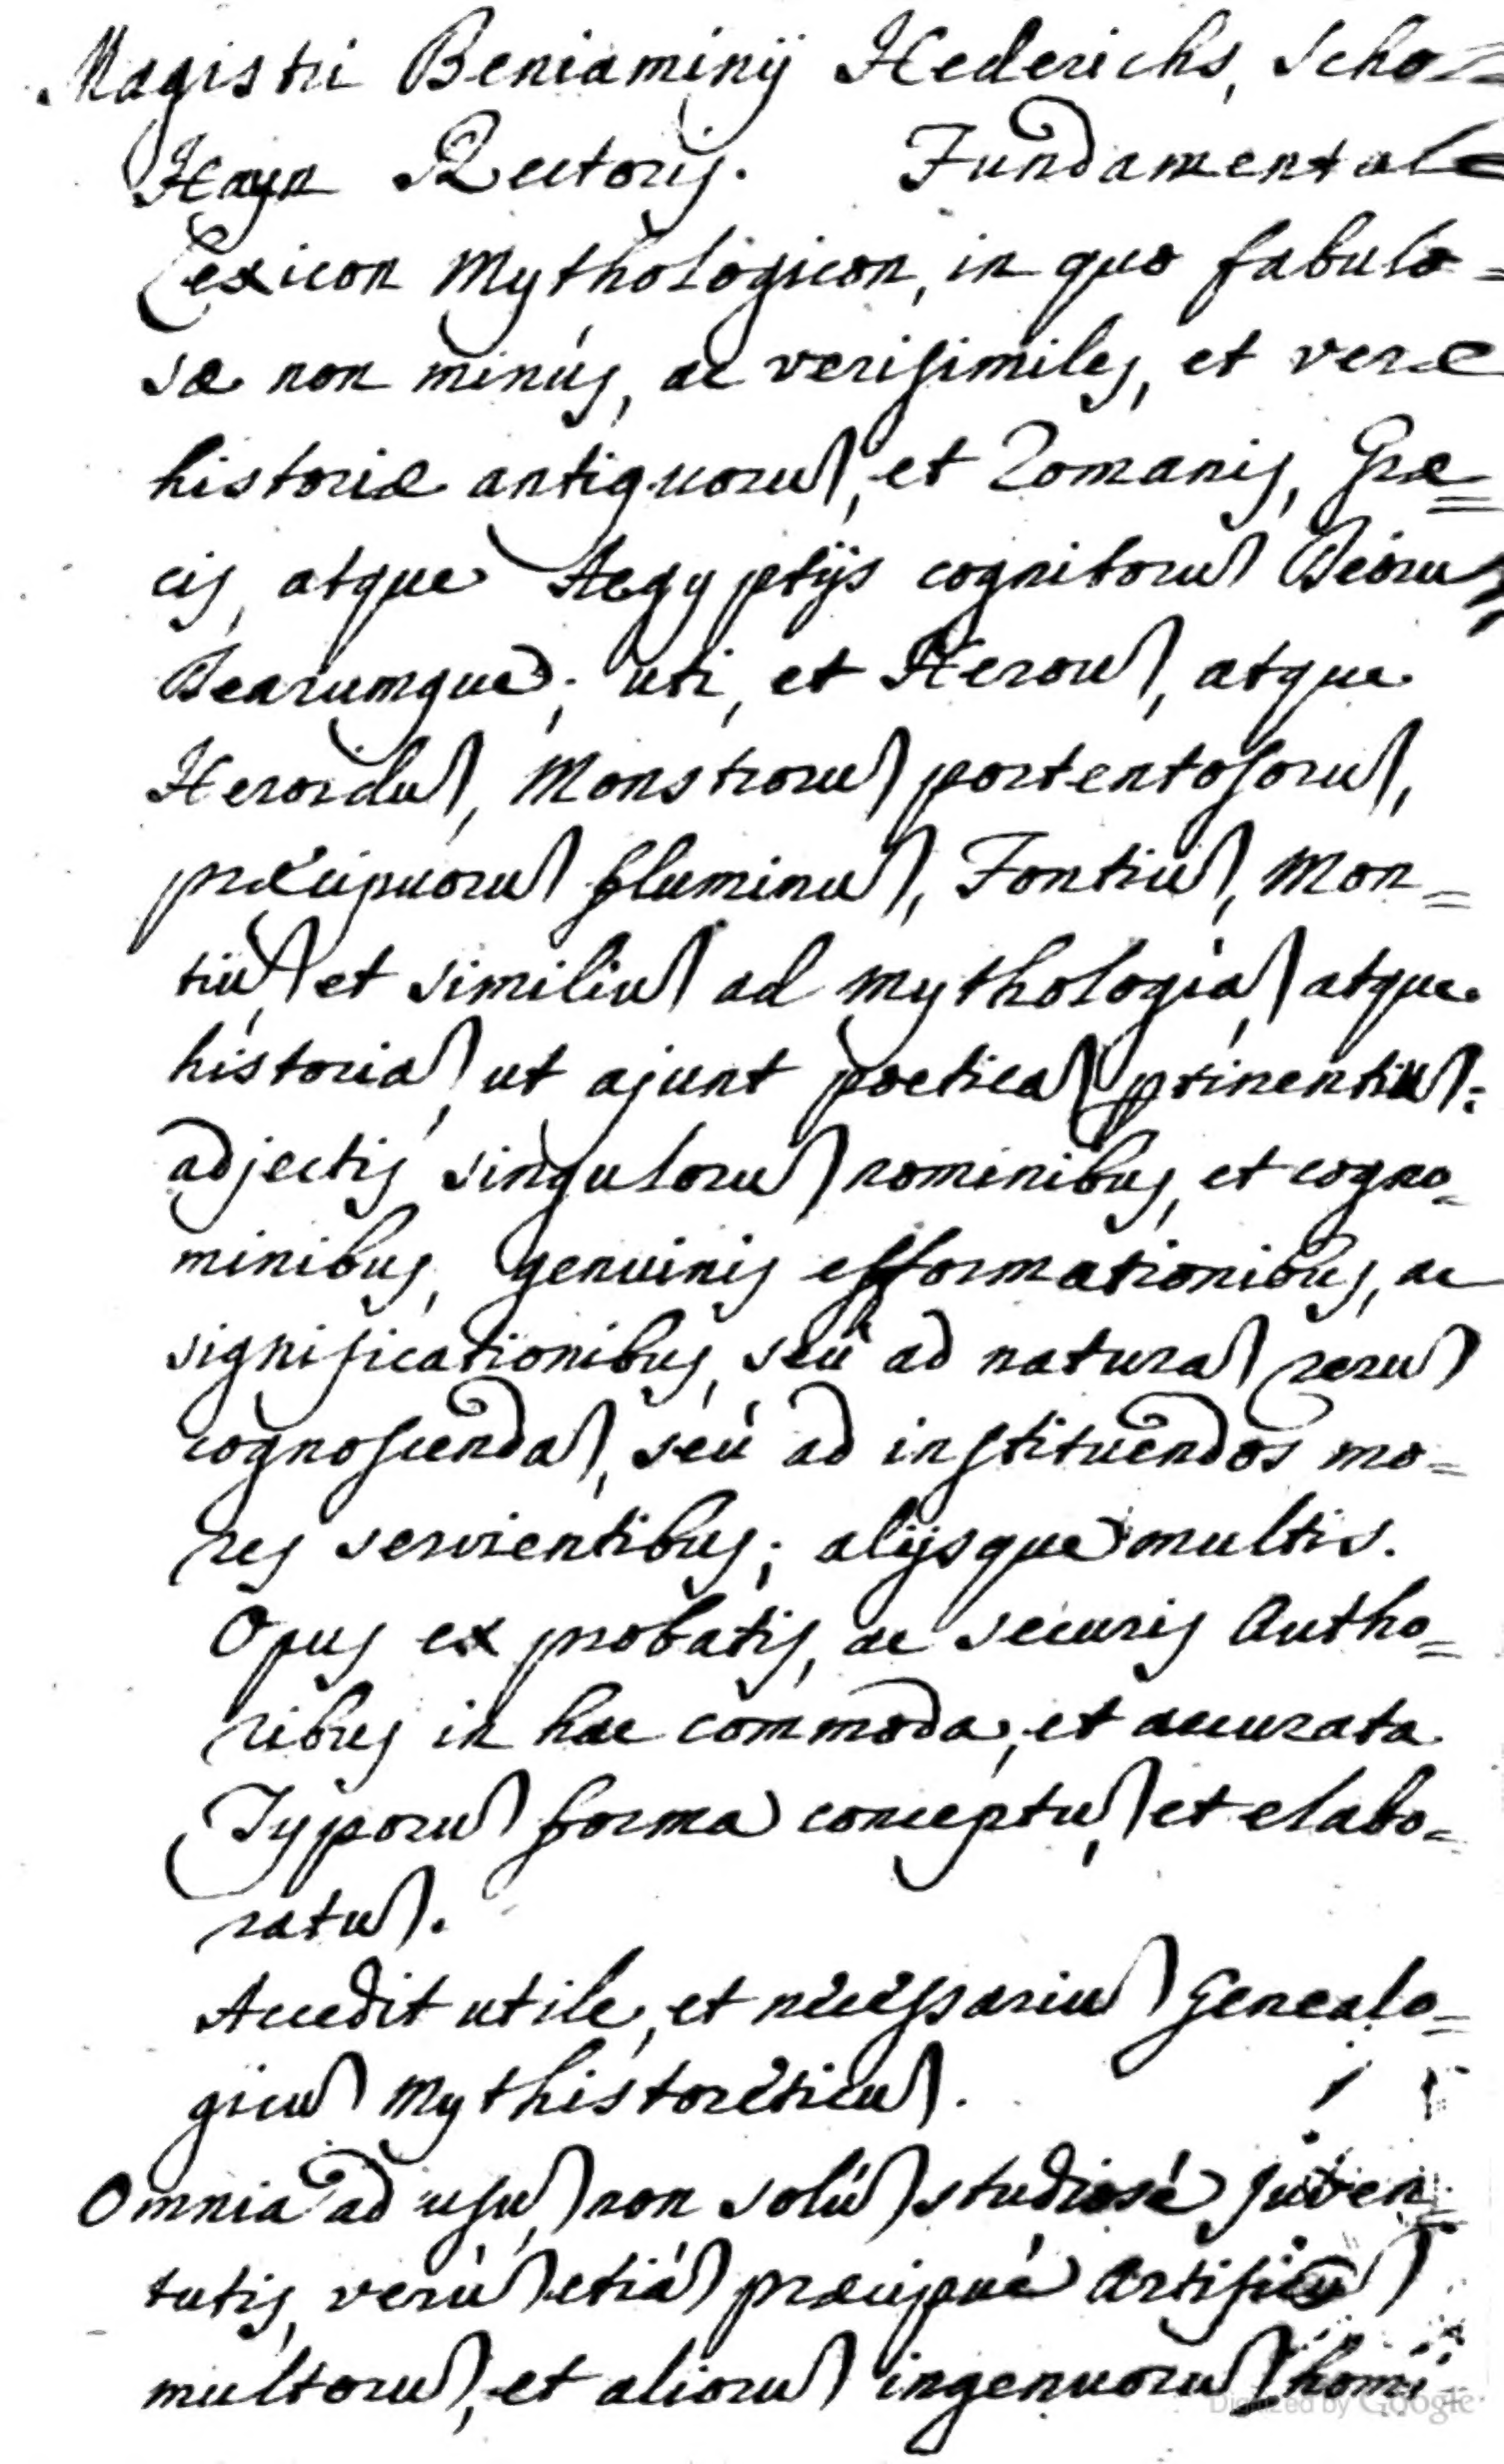 Magistri Beniaminij Hederichs, Scho=
Hayn Rectoris. Fundamentale
Lexicon Mythologicon, in quo fabulo=
sæ non minús, ac verisimiles, et veræ
historiæ antiquorum, et Romanis, Græ=
cis, atque Aegyptijs cognitorum Deorum
Dearumque; uti, et Heroum, atque
Heroidum, Monstrorum portentosorum,
præcipuorum fluminum, Fontium, Mon=
tium, et similium ad mythologiam, atque
historiam, ut ajunt poeticam ptinentium:
adjectis singulorum nominibus, et cogno=
minibus, genuinis efformationibus, ac
significationibus, seú ad naturam rerum
cognoscendam, seú ad instituendos mo=
res servientibus; alijsque multis.
Opus ex probatis, ac securis Autho=
ribus in hac commoda, et accurata
Typorum forma conceptum, et elabo=
ratum.
Accedit utile, et necessarium Genealo=
gicum Mythistoreticum.
Omnia ad usum, non solúm studiosé Juven=
tutis, verúm etiám præcipué Artificum
multorum, et aliorum ingenuorum homi
Digitized by Google